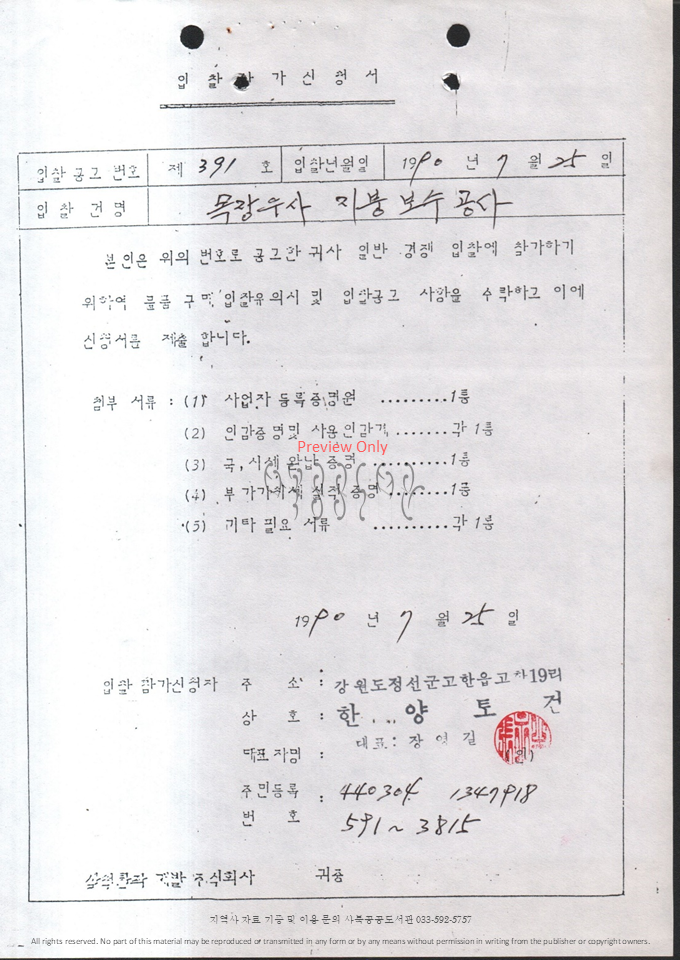 입 찰 참 가 신 청 서
입찰 공고 번호 제 391 호 입찰년월일 1990 년 7 월 25 일
입 찰 건 명 목장우사 지붕 보수 공사
본인은 위의 번호로 공고한 귀사 일반 경쟁 입찰에 참가하기
위하여 물품 구매 입찰유의서 및 입찰공고 사항을 수락하고 이에
신청서를 제출 합니다.
첨부 서류 : (1) 사업자 등록증명원 ......... 1통
(2) 인감증명및 사용인감계 ....... 각 1통
Preview Only
(3) 국, 시세 완납 증명 ......... 1통
(4) 부가가치세 실적 증명 ....... 1통
(5) 기타 필요 서류 .......... 각 1통
1990 년 7 월 25 일
입찰 참가신청자 주 소 : 강원도정선군고한읍고한19리
상 호 : 한 양 토 건
대표자명 : 대표: 장 길 (인)
주민등록 : 440304 1347918
번 호 591 ~ 3815
개발 주식회사 귀중
지역사 자료 기증 및 이용 문의 사북공공도서관 033-592-5757
All rights reserved. No part of this material may be reproduced or transmitted in any form or by any means without permission in writing from the publisher or copyright owners.